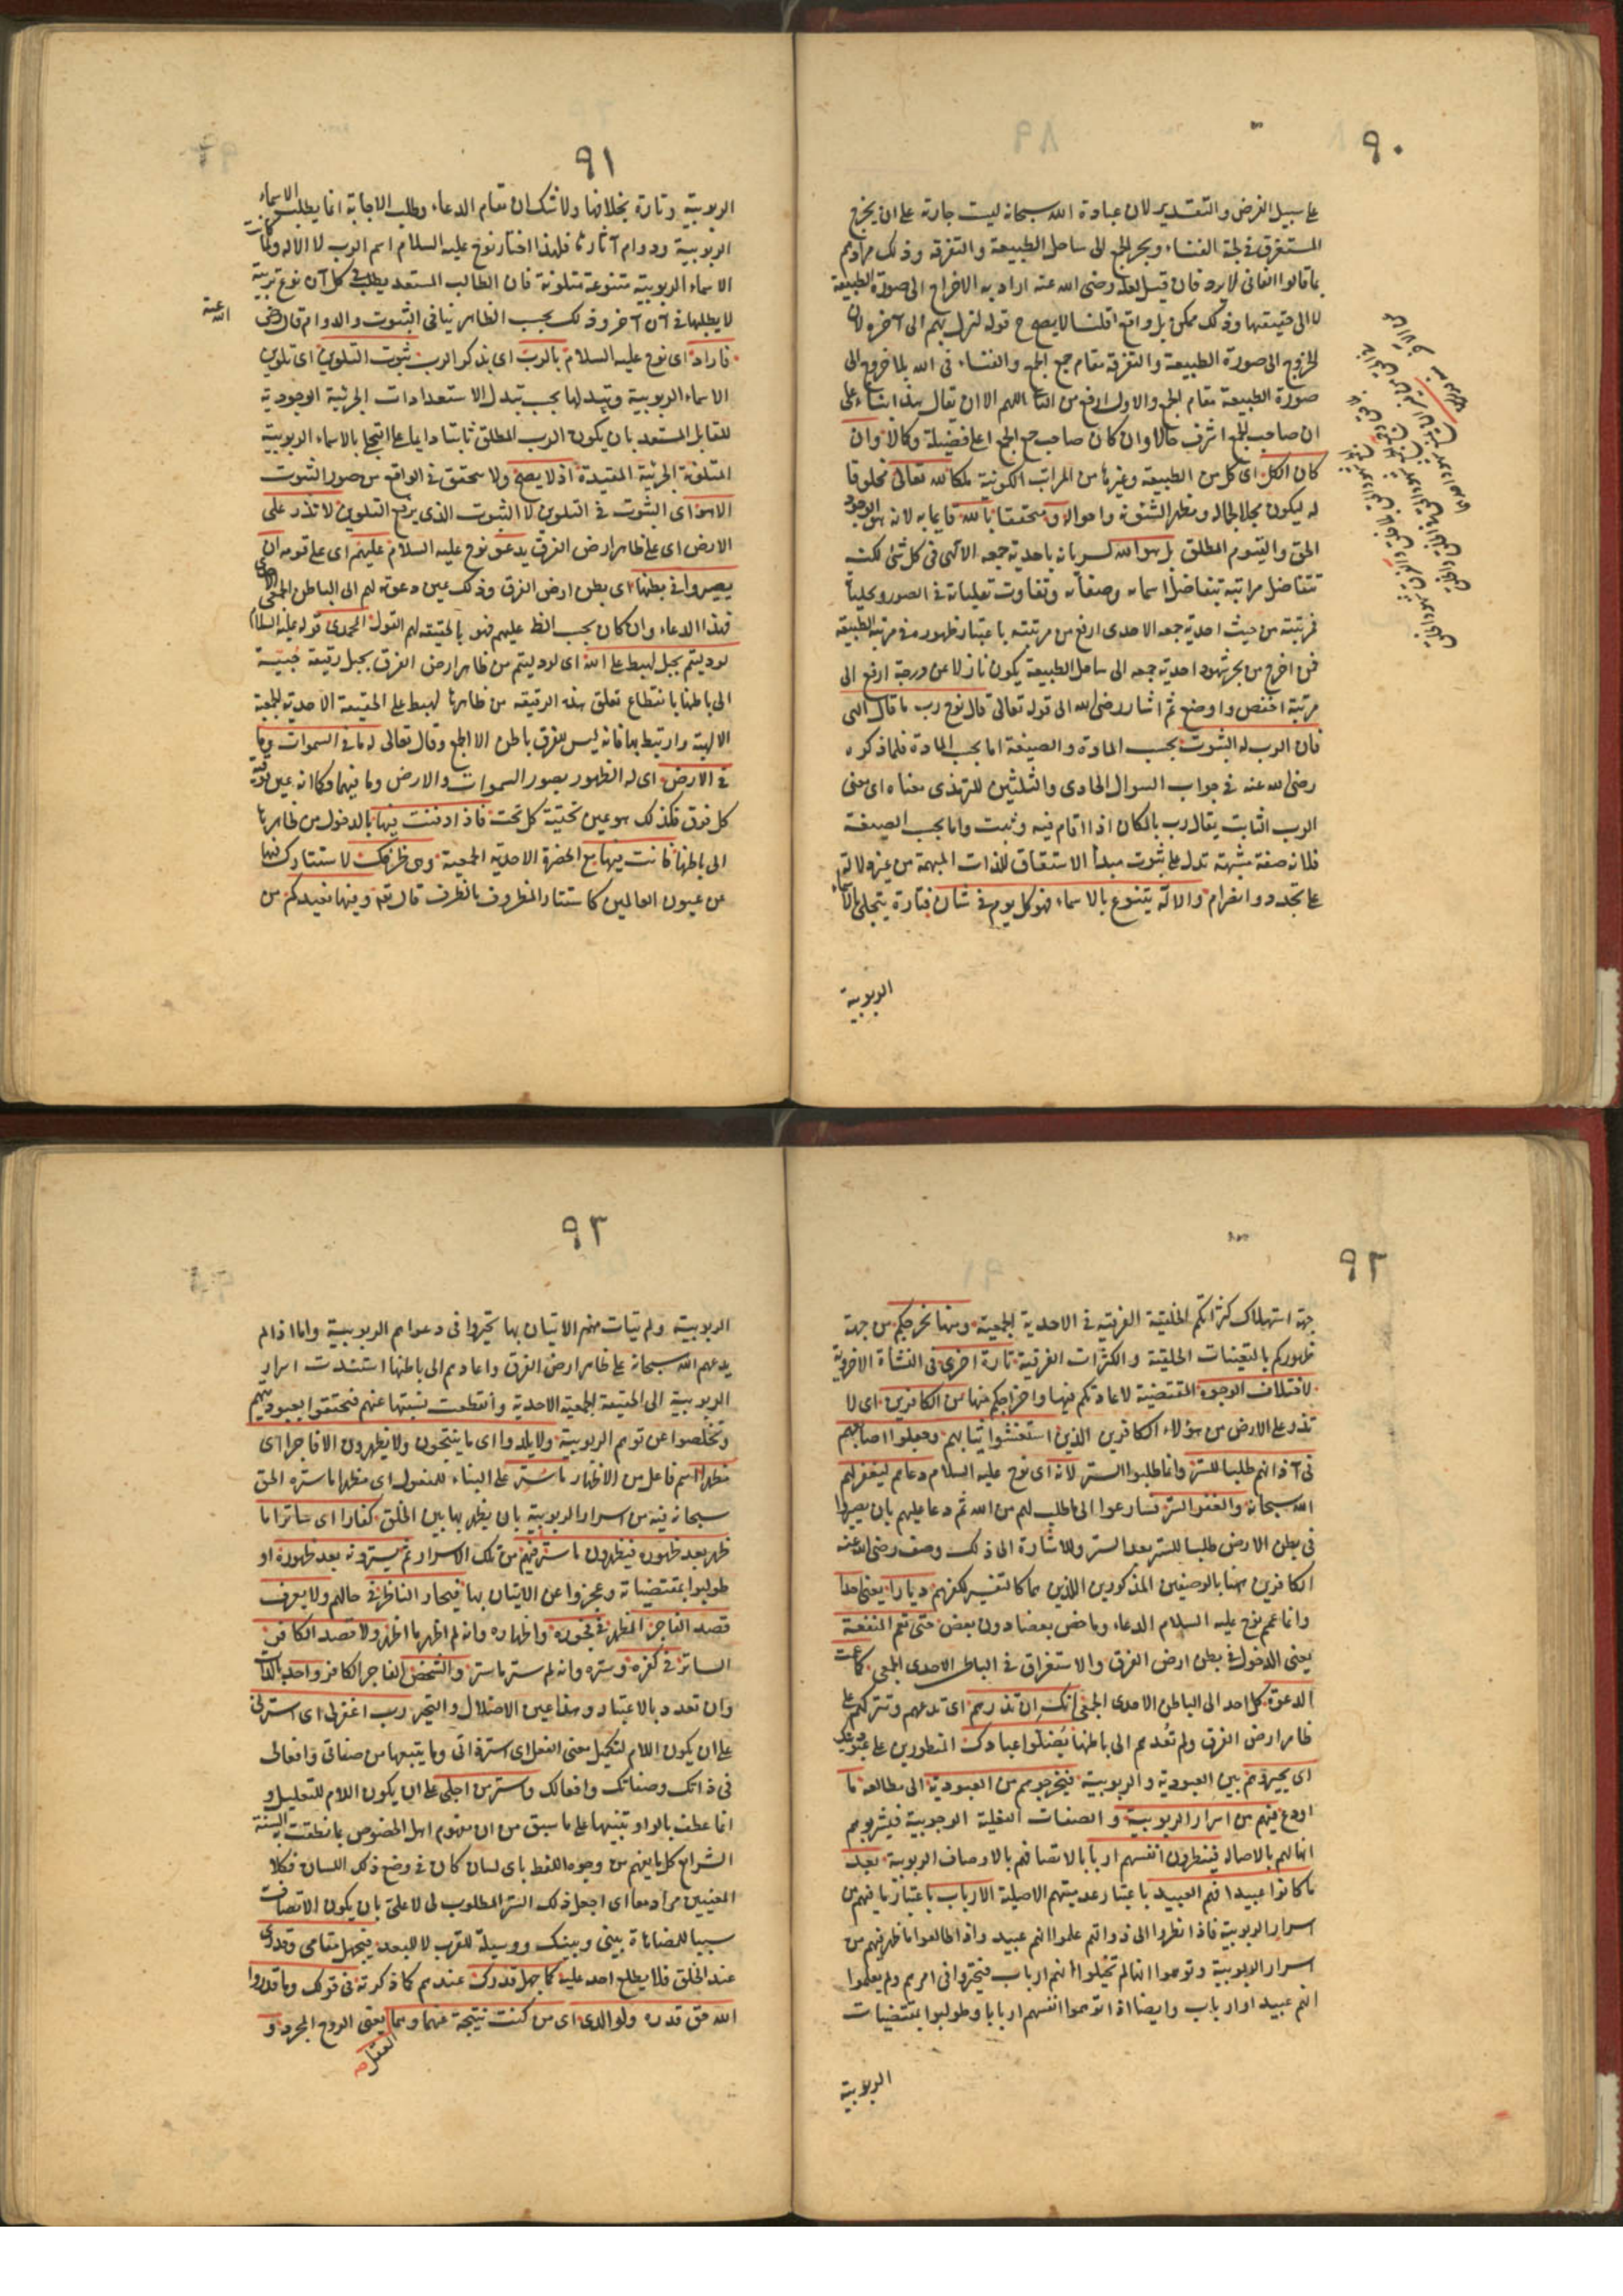 ٩٠
على سبيل الفرض والتقدير لان عبادة الله سبحانه ليست جارية على ان يخرج
المستغرق فى لجة الفناء وبحر الجمع الى ساحل الطبيعة والتفرقة وذلك مرادهم
بما قالوا الفانى لا يرد فان قيل لعله رضى الله عنه اراد به الاخراج الى صورة الطبيعة
لا الى حقيقتها وذلك ممكن بل واقع قلنا لا يصح ح قوله لنزل بهم الى آخره لان
الخروج الى صورة الطبيعة والتفرقة مقام جمع الجمع والفناء فى الله بلا خروج الى
صورة الطبيعة مقام الجمع والاول ارفع من الثانى اللهم الا ان يقال هذا بناء على
ان صاحب الجمع اشرف حالا وان كان صاحب جمع الجمع اعلى فضيلة وكمالا وان
كان الكل اى كل من الطبيعة وغيرها من المراتب الكونية ملكا لله تعالى مخلوقا
له ليكون مجلا لجماله ومظهرا لشئونه واحواله ومتحققا بالله قايما به لانه هو الوجود
الحق والقيوم المطلق بل هو الله لسريانه باحدية جمعه الالهى فى كل شئ لكن
تتفاضل مراتبه بتفاضل اسمائه وصفاته وتفاوت تجلياته فى الصور وتجلياته
فمرتبته من حيث احدية جمعه الاحدى ارفع من مرتبته باعتبار ظهوره فى مرتبة الطبيعة
فمن اخرج من بحر شهود احدية جمعه الى ساحل الطبيعة يكون نازلا عن درجة ارفع الى
مرتبة اخفض واوضع ثم اشار رضى الله الى قوله تعالى قال نوح رب ما قال الهى
فان الرب له الثبوت بحسب المادة والصيغة اما بحسب المادة فلما ذكره
رضى الله عنه فى جواب السوال الحادى والثلثين للترمذى معناه اى معنى
الرب الثابت يقال رب بالمكان اذا اقام فيه وثبت واما بحسب الصيغة
فلانه صفة مشبهة تدل على ثبوت مبدأ الاشتقاق للذات المبهمة من غير دلالة
على تجدد وانصرام والاله يتنوع بالاسماء فهو كل يوم فى شان فتارة يتجلى بالاسماء
الربوبية
٩١
الربوبية وتارة بخلافها ولا شك ان مقام الدعاء وطلب الاجابة انما يطلب الاسماء
الربوبية ودوام آثارها فلهذا اختار نوح عليه السلام اسم الرب لا الاله ولما كانت
الاسماء الربوبية متنوعة متلونة فان الطالب المستعد يطلب فى كل آن نوع تربية
لا يطلبها فى آن آخر وذلك بحسب الظاهر ينافى الثبوت والدوام قال رضى
الله عنه
فاراد اى نوح عليه السلام بالرب اى بذكر الرب ثبوت التلوين اى تلوين
الاسماء الربوبية وتبدلها بحسب تبدل الاستعدادات الجزئية الوجودية
للقابل المستعد بان يكون الرب المطلق ثابتا دايما على التجلى بالاسماء الربوبية
المتلونة الجزئية المقيدة اذ لا يصح ولا يتحقق فى الواقع من صور الثبوت
الا هو اى الثبوت فى التلوين لا الثبوت الذى يرفع التلوين لا تذر على
الارض اى على ظاهر ارض الفرق يدعو نوح عليه السلام عليهم اى على قومه ان
يصيروا فى بطنها اى بطن ارض الفرق وذلك عين دعوته لهم الى الباطن الجمعى الاحدى
فهذا الدعاء وان كان بحسب الظ عليهم فهو بالحقيقة لهم القول المحمدى قوله عليه السلام
لو دليتم بحبل لهبط على الله اى لو دليتم من ظاهر ارض الفرق بحبل رقيقة حبيسة
الى باطنها بانقطاع تعلق هذه الرقيقة من ظاهرها لهبط على الحقيقة الاحدية الجمعية
الالهية وارتبط بها فانه ليس للفرق باطن الا الجمع وقال تعالى له ما فى السموات وما
فى الارض اى له الظهور بصور السموات والارض وما فيهما وكما انه عين فوقية
كل فوق فكذلك هو عين تحتية كل تحت فاذا دفنت فيها بالدخول من ظاهرها
الى باطنها فانت فيها مع الحضرة الاحدية الجمعية وهى ظرفك لاستتارك فيها
عن عيون العالمين كاستتار المظروف بالظرف قال تع وفيها نعيدكم من
٩٢
جهة استهلاك كثراتكم الخلقية الفرقية فى الاحدية الجمعية ومنها نخرجكم من جهة
ظهوركم بالتعينات الخلقية والكثرات الفرقية تارة اخرى فى النشاة الاخروية
لاختلاف الوجوه المقتضية لاعادتكم فيها واخراجكم منها من الكافرين اى لا
تذر على الارض من هؤلاء الكافرين الذين استغشوا ثيابهم وجعلوا اصابعهم
فى آذانهم طلبا للستر وانما طلبوا الستر لانه اى نوح عليه السلام دعاهم ليغفر لهم
الله سبحانه والغفر الستر فسارعوا الى ما طلب لهم من الله ثم دعا عليهم بان يصيروا
فى بطن الارض طلبا للستر بعد الستر وللاشارة الى ذلك وصف رضى الله عنه
الكافرين هنا بالوصفين المذكورين اللذين هما كالتفسير لكفرهم ديارا يعنى احدا
وانما عمم نوح عليه السلام الدعاء وما خص بعضا دون بعض حتى تعم المنفعة
يعنى الدخول فى بطن ارض الفرق والاستغراق فى الباطن الاحدى الجمعى كما عمت
الدعوة كل احد الى الباطن الاحدى الجمعى انك ان تذرهم اى تدعهم وتتركهم على
ظاهر ارض الفرق ولم تعدهم الى باطنها يضلوا عبادك المفطورين على عبوديتك
اى يحيروهم بين العبودية والربوبية فيخرجوهم من العبودية الى مطالعة ما
اودع فيهم من اسرار الربوبية والصفات الفعلية الوجوبية فيشربوهم
انها لهم بالاصالة فينظرون انفسهم اربابا لاتصافهم بالاوصاف الربوبية بعد
ما كانوا عبيدا فهم العبيد باعتبار عدميتهم الاصلية الارباب باعتبار ما فيهم من
اسرار الربوبية فاذا نظروا الى ذواتهم علموا انهم عبيد واذا طالعوا ما ظهر فيهم من
اسرار الربوبية وتوهموا انها لهم تخيلوا انهم ارباب فتحيروا فى امرهم ولم يعلموا
انهم عبيد او ارباب وايضا اذا توهموا انفسهم اربابا وطولبوا بمقتضيات
الربوبية
٩٣
الربوبية ولم يتات منهم الاتيان بها تحيروا فى دعواهم الربوبية واما اذا لم
يدعهم الله سبحانه على ظاهر ارض الفرق واعادهم الى باطنها استندت اسرار
الربوبية الى الحقيقة الجمعية الاحدية وانقطعت نسبتها عنهم فتحققوا بعبوديتهم
وتخلصوا عن توهم الربوبية ولا يلدوا اى ما ينتجون ولا يظهرون الا فاجرا اى
مظهرا اسم فاعل من الاظهار ما ستر على البناء للمفعول اى مظهرا ما ستره الحق
سبحانه فيه من اسرار الربوبية بان يظهر بها بين الخلق كفارا اى ساترا ما
ظهر بعد ظهوره فيظهرون ما ستر فيهم من تلك الاسرار ثم يسترونه بعد ظهوره او
طولبوا بمقتضياته وعجزوا عن الاتيان بها فيحار الناظر فى حالهم ولا يعرف
قصد الفاجر المظهر فى فجوره واظهاره وانه لم اظهر ما اظهر ولا قصد الكافر
الساتر فى كفره وستره وانه لم ستر ما ستر والشخص الفاجر الكافر واحد بالذات
وان تعدد بالاعتبار وهذا عين الاضلال والتحير رب اغفر لى اى استرنى
على ان يكون اللام لتكميل معنى الفعل اى استر ذاتى وما يتبعها من صفاتى وافعالى
فى ذاتك وصفاتك وافعالك واستر من اجلى على ان يكون اللام للتعليل و
انما عطف بالواو تنبيها على ما سبق من ان مفهوم اهل الخصوص بما نطقت به السنة
الشرايع كل ما يفهم من وجوه اللفظ باى لسان كان فى وضع ذلك اللسان فكلا
المعنيين مراد معا اى اجعل ذلك الستر المطلوب لى لا على بان يكون الاتصاف
سببا للمضاهاة بينى وبينك ووسيلة للقرب لا للبعد فيجهل مقامى وقدرى
عند الخلق فلا يطلع احد عليه كما جهل قدرك عندهم كما ذكرته فى قولك وما قدروا
الله حق قدره ولوالدى اى من كنت نتيجة عنهما وهما يعنى الروح المجرد و
العقل